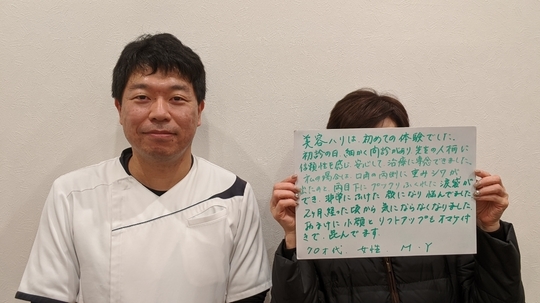 美容ハリは、初めての体験でした。
初診の日、細かく問診があり先生の人柄に
信頼性を感じ、安心して、治療に専念できました。
私の場合は、口角の両側に重みジワが
出たのと、両目下にプックリふくれた涙袋が
でき、非常にふけた顔になり悩んでました
2ヶ月経った頃から気にならなくなりました
おまけに小顔とリフトアップもオマケ付
きで、喜んでます。
70才代 女性 M・Y